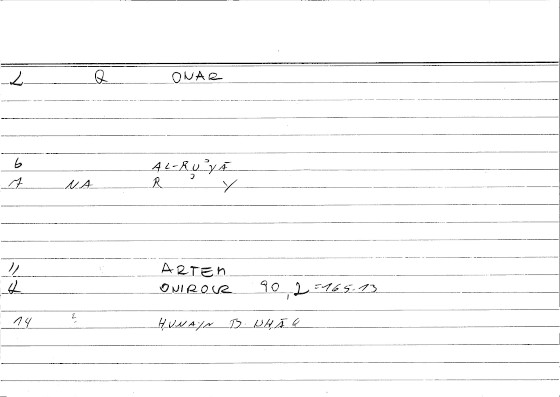 2 Q ONAR
6 AL-RUʾYĀ
7 NA R ʾ Y
11 ARTEM
12 ONIROCR 90,2=165.13
14 HUNAYN B